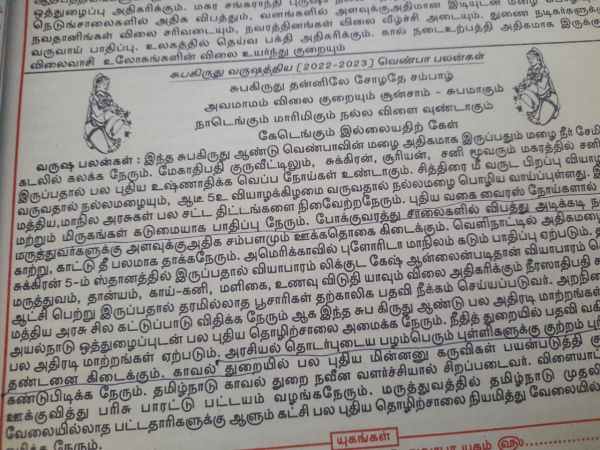 ஒத்துழைப்பு அதிகரிக்கும். மகர சங்கராந்தி
நெடுஞ்சாலைகளில் அதிக விபத்தும், வனங்களில் அளவுக்குஅதிமான இடியுடன் மழை
நவதானிங்கள் விலை சரிவடையும், நவரத்தினங்கள் விலை வீழ்சி அடையும். துணை நடிகர்களுக்கு
வருவாய் பாதிப்பு. உலகத்தில் தெய்வ பக்தி அதிகரிக்கும். கால் நடைஉற்பத்தி அதிகமாக இருக்கு
விலைவாசி உலோகங்களின் விலை உயர்ந்து குறையும்
சுபகிருது வருஷத்திய (2022-2023) வெண்பா பலன்கள்
சுபகிருது தன்னிலே சோழதே சம்பாழ்
அவமாமம் விலை குறையும் சூன்சாம் - சுபமாகும்
நாடெங்கும் மாரிமிகும் நல்ல விளை வுண்டாகும்
கேடெங்கும் இல்லையதிற் கேள்
வருஷ பலன்கள் : இந்த சுபகிருது ஆண்டு வெண்பாவின் மழை அதிகமாக இருப்பதும் மழை நீர் சேமி
கடலில் கலக்க நேரும். மேகாதிபதி குருவீட்டிலும், சுக்கிரன், சூரியன், சனி மூவரும் மகரத்தில் சனி
இருப்பதால் பல புதிய உஷ்ணாதிக்க வெப்ப நோய்கள் உண்டாகும். சித்திரை மீ வருட பிறப்பு வியாழ
வருவதால் நல்லமழையும், ஆடீ 5உ வியாழக்கிழமை வருவதால் நல்லமழை பொழிய வாய்ப்புள்ளது. இ
மத்திய,மாநில அரசுகள் பல சட்ட திட்டங்களை நிவேற்றநேரும். புதிய வகை வைரஸ் நோய்களால்
மற்றும் மிருகங்கள் கடுமையாக பாதிப்பு நேரும். போக்குவரத்து சாலைகளில் விபத்து அடிக்கடி ந
மருத்துவர்களுக்கு அளவுக்குஅதிக சம்பளமும் ஊக்கதொகை கிடைக்கும். வெளிநாட்டில் அதிகமழை
காற்று, காட்டு தீ பலமாக தாக்கநேரும். அமெரிக்காவில் புளோரிடா மாநிலம் கடும் பாதிப்பு ஏற்படும்.
சுக்கிரன் 5-ம் ஸ்தானத்தில் இருப்பதால் வியாபாரம் லிக்குட கேஷ் ஆன்லைன்படிதான் வியாபாரம்
மருத்துவம், தான்யம், காய்-கனி, மளிகை, உணவு விடுதி யாவும் விலை அதிகரிக்கும் நீரஸாதிபதி
ஆட்சி பெற்று இருப்பதால் தரமில்லாத பூசாரிகள் தற்காலிக பதவி நீக்கம் செய்யப்படுவர். அறநிலை
மத்திய அரசு சில கட்டுப்பாடு விதிக்க நேரும் ஆக இந்த சுப கிருது ஆண்டு பல அதிரடி மாற்றங்கள்
அயல்நாடு ஒத்துழைப்புடன் பல புதிய தொழிற்சாலை அமைக்க நேரும். நீதித் துறையில் பதவி வகி
பல அதிரடி மாற்றங்கள் ஏற்படும். அரசியல் தொடர்புடைய பழம்பெரும் புள்ளிகளுக்கு குற்றம் புரி
தண்டனை கிடைக்கும். காவல் துறையில் பல புதிய மின்னனு கருவிகள் பயன்படுத்தி
கண்டுபிடிக்க நேரும். தமிழ்நாடு காவல் துறை நவீன வளர்ச்சியால் சிறப்படைவர். விளையாட்
ஊக்குவித்து பரிசு பாரட்டு பட்டயம் வழங்கநேரும். மருத்துவத்தில் தமிழ்நாடு முதலி
வேலையில்லாத பட்டதாரிகளுக்கு ஆளும் கட்சி பல புதிய தொழிற்சாலை நியமித்து வேலையில்
நேரும்.
யுகங்கள்
யுகம்